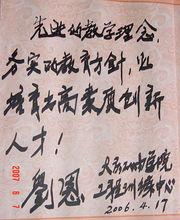 先进的教学理念,
务实的教育方针,必
培育出高素质创新
人才!
刘恩
大庆石油学院
培训中心
2006.4.17
2007 8 7